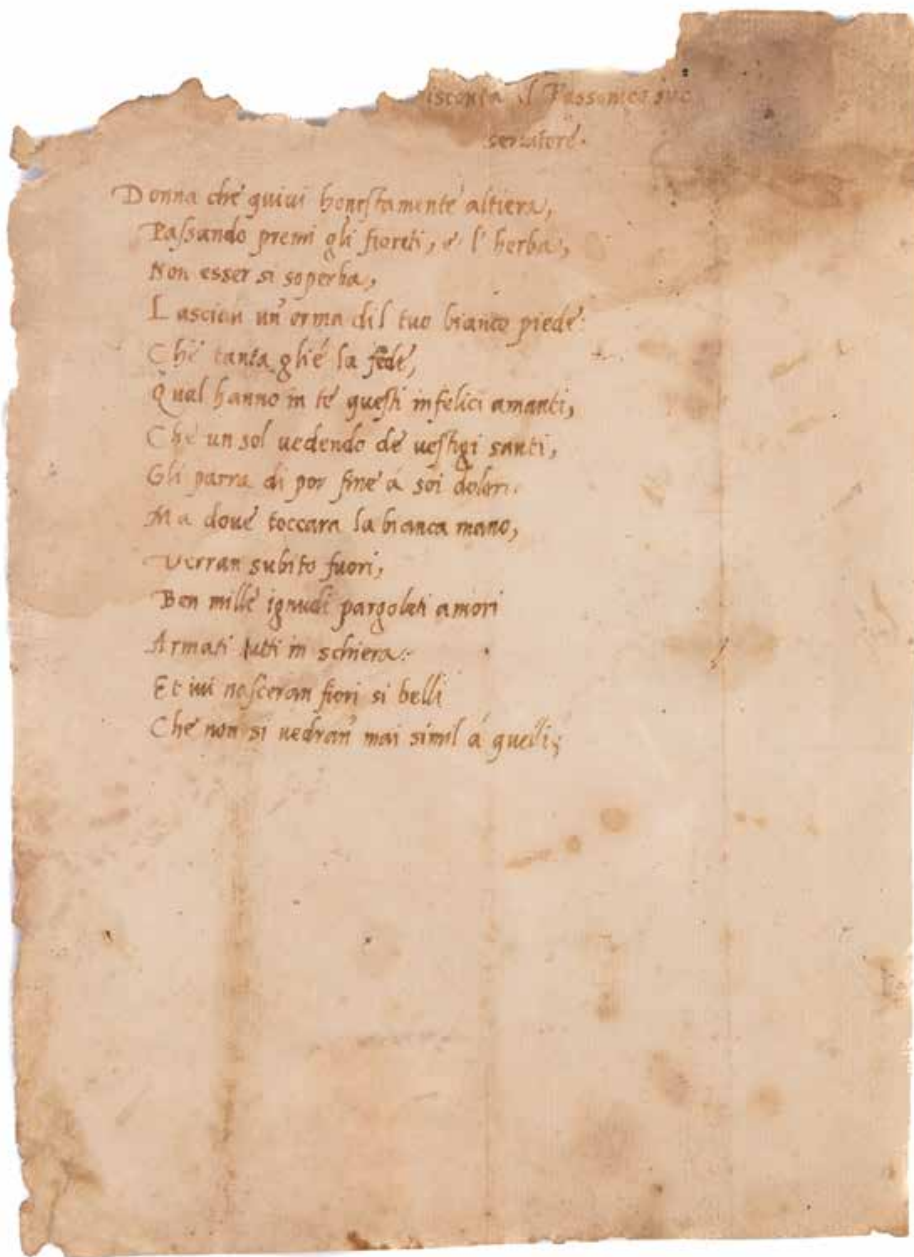 il Passonico suo
servitore.
Donna che quivi honestamente altiera,
Passando premi gli fioreti, e l'herba,
Non esser si soperba,
Lascian un'orma dil tuo bianco piede:
Che tanta glié la fede,
Qual hanno in te questi infelici amanti,
Che un sol vedendo de vestigi santi,
Gli parra di por fine á soi dolori.
Ma dove toccara la bianca mano,
Verran subito fuori,
Ben mille ignudi pargoleti amori
Armati tutti in schiera:
Et ivi nasceran fiori si belli
Che non si vedran mai simil á quelli;